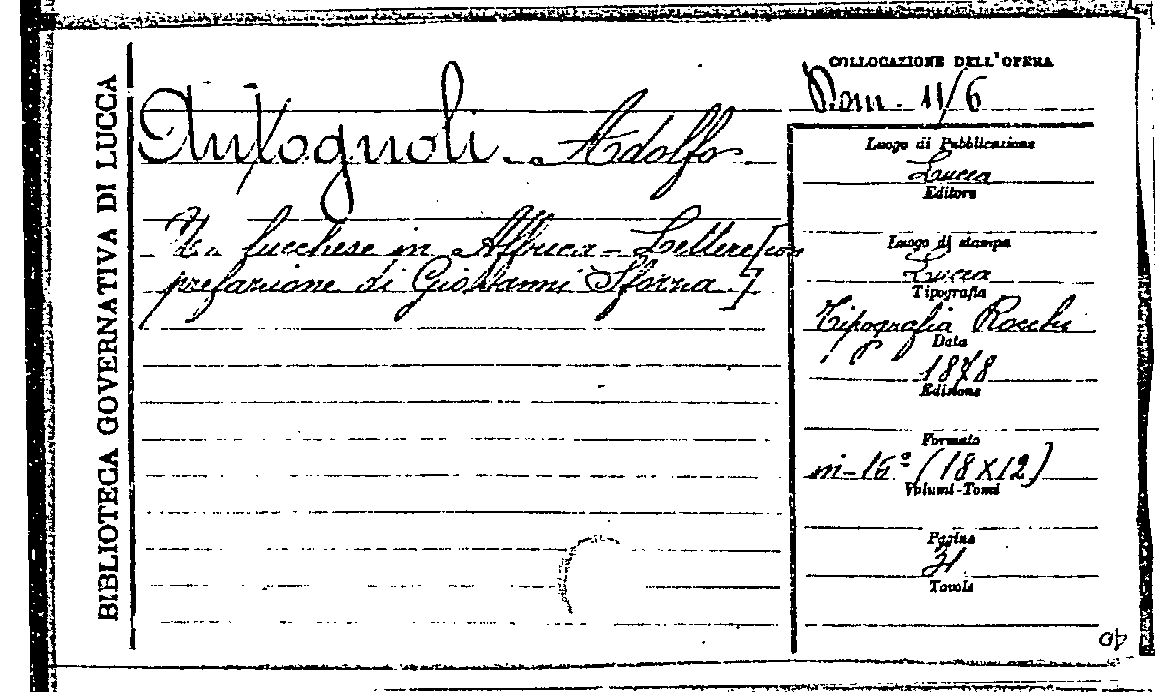 BIBLIOTECA GOVERNATIVA DI LUCCA
Antognoli - Adolfo
Un lucchese in Affrica - Lettere [con
prefazione di Giovanni Sforza.]
COLLOCAZIONE DELL'OPERA
Rom. 11/6
Luogo di Pubblicazione
Lucca
Editore
Luogo di stampa
Lucca
Tipografia
Tipografia Rocchi
Data
1878
Edizione
Formato
in-16º (18X12)
Volumi-Tomi
Pagine
31
Tavole